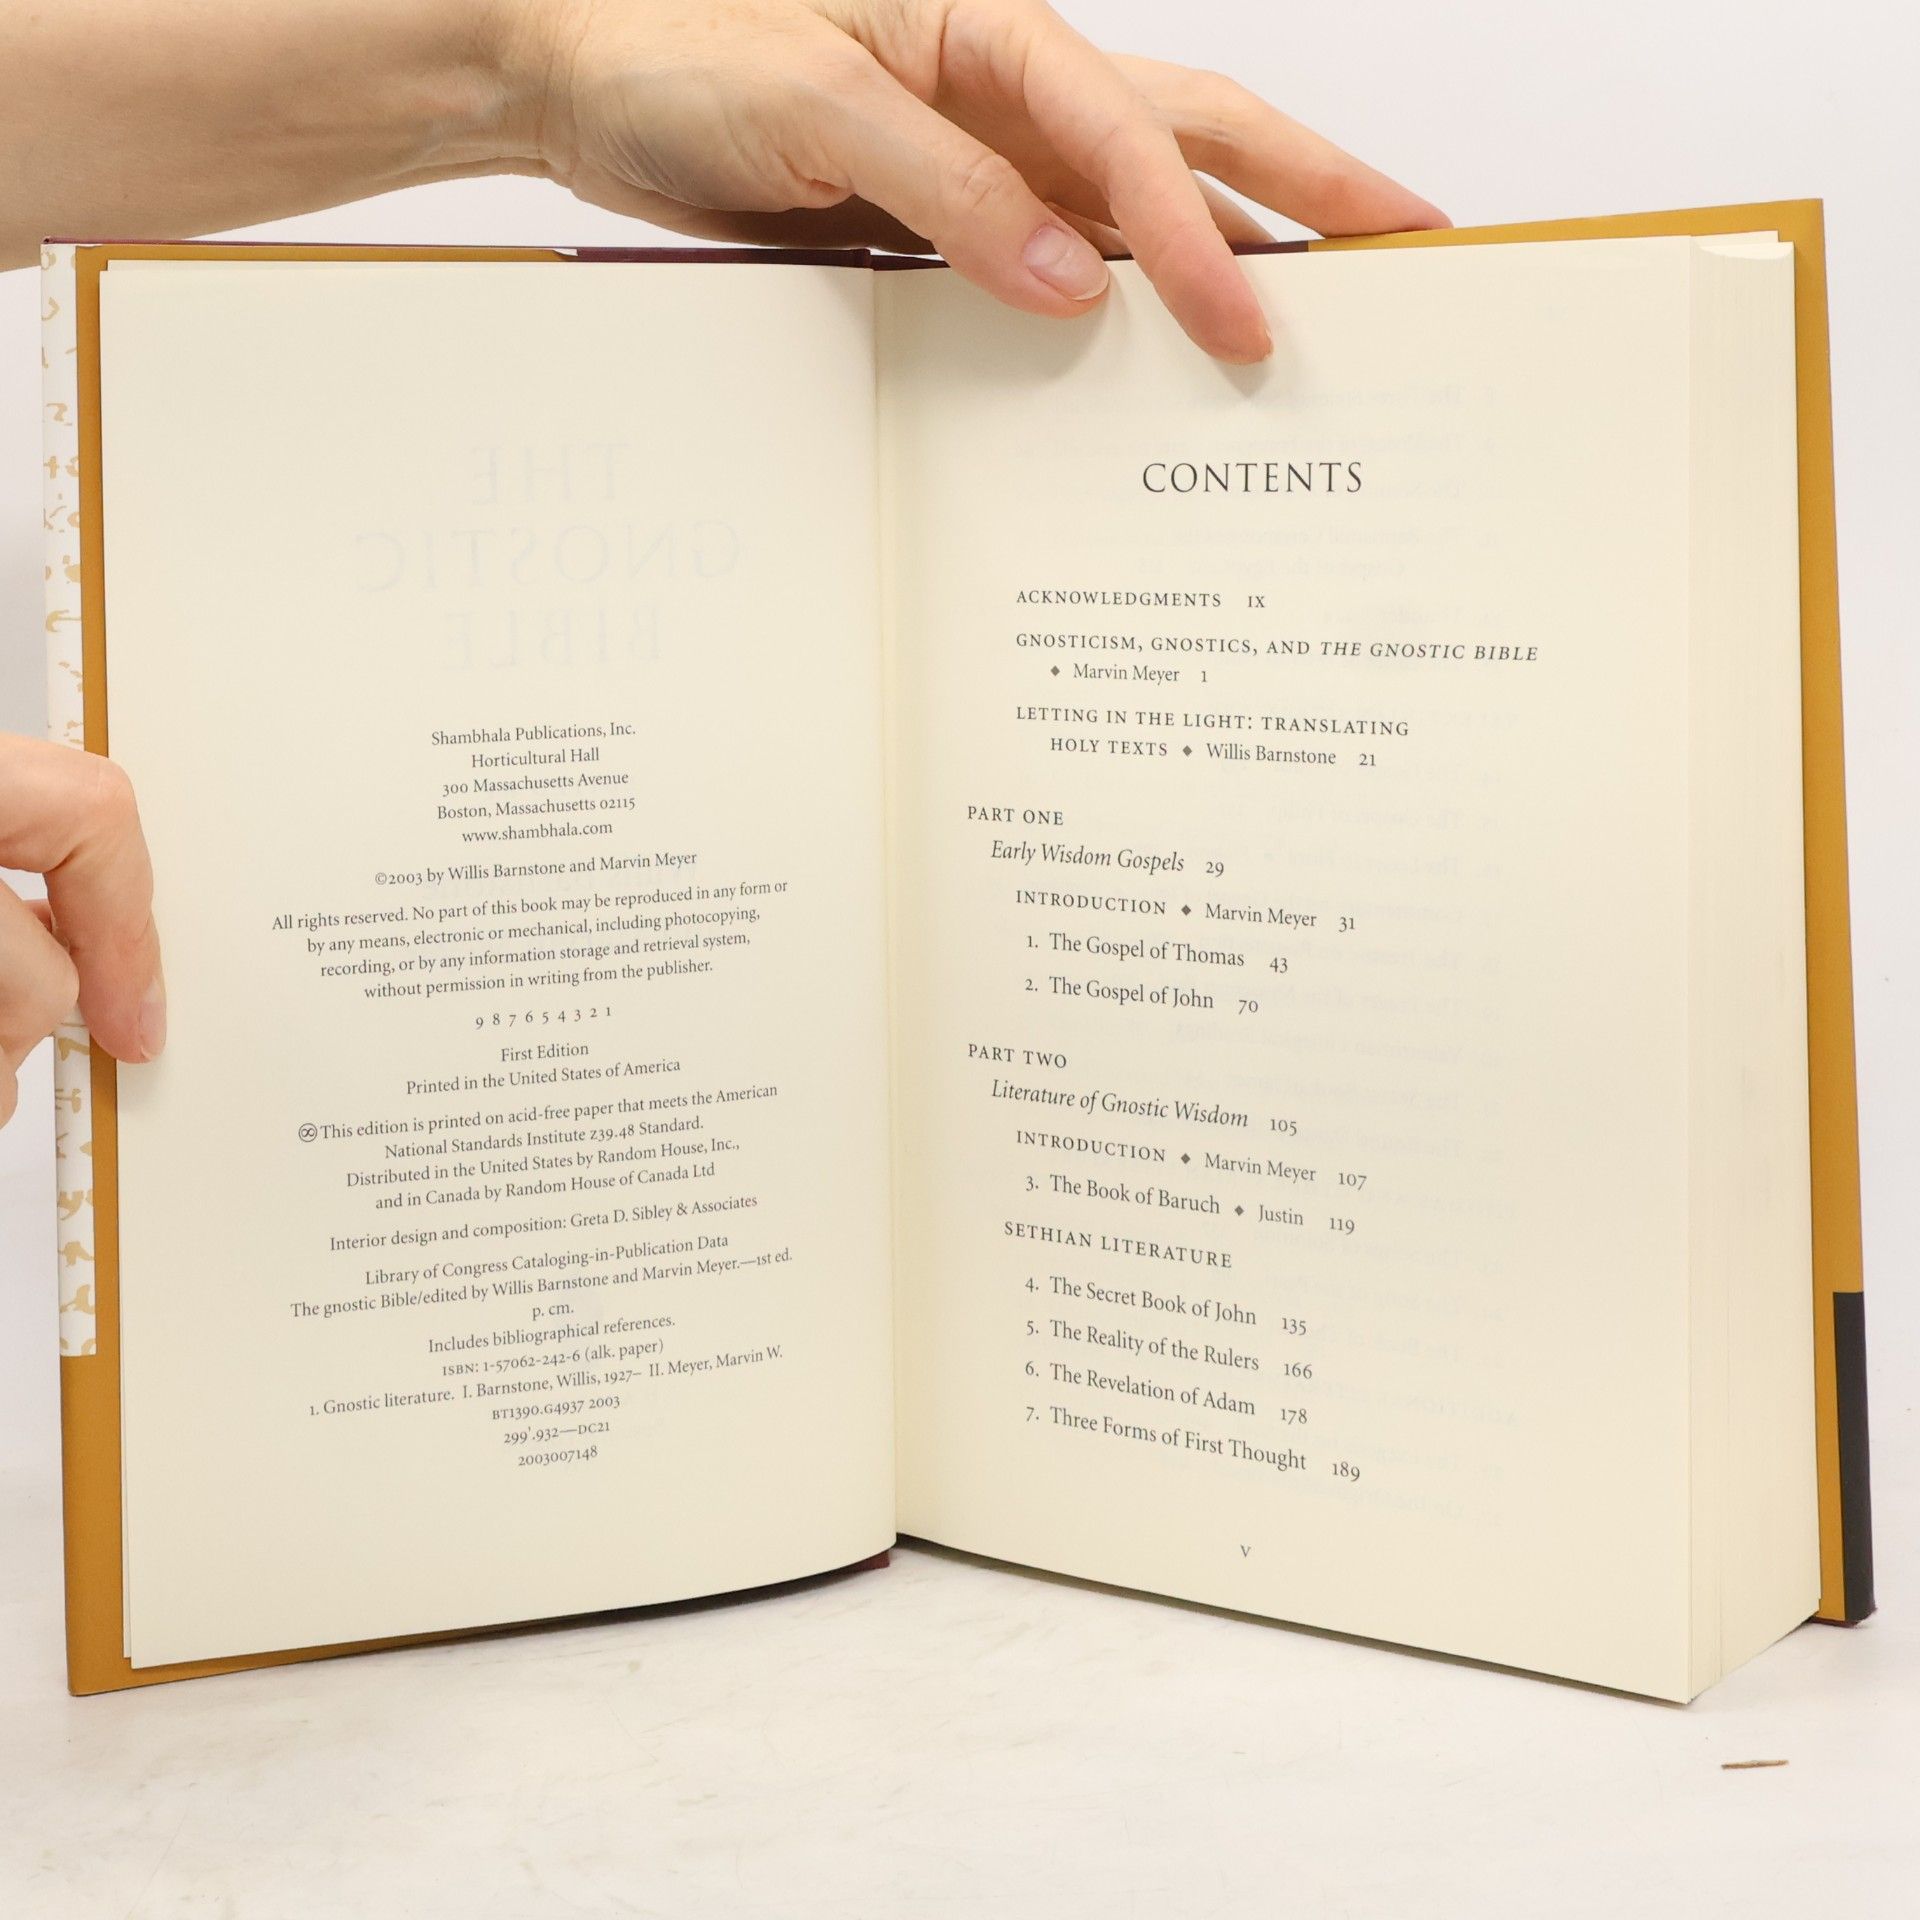 Shambhala Publications, Inc.
Horticultural Hall
300 Massachusetts Avenue
Boston, Massachusetts 02115
www.shambhala.com
©2003 by Willis Barnstone and Marvin Meyer
All rights reserved. No part of this book may be reproduced in any form or
by any means, electronic or mechanical, including photocopying,
recording, or by any information storage and retrieval system,
without permission in writing from the publisher.
9 8 7 6 5 4 3 2 1
First Edition
Printed in the United States of America
♾ This edition is printed on acid-free paper that meets the American
National Standards Institute z39.48 Standard.
Distributed in the United States by Random House, Inc.,
and in Canada by Random House of Canada Ltd
Interior design and composition: Greta D. Sibley & Associates
Library of Congress Cataloging-in-Publication Data
The gnostic Bible/edited by Willis Barnstone and Marvin Meyer.—1st ed.
p. cm.
Includes bibliographical references.
ISBN: 1-57062-242-6 (alk. paper)
1. Gnostic literature. I. Barnstone, Willis, 1927– II. Meyer, Marvin W.
BT1390.G4937 2003
299'.932—DC21
2003007148
CONTENTS
ACKNOWLEDGMENTS IX
GNOSTICISM, GNOSTICS, AND THE GNOSTIC BIBLE
◆ Marvin Meyer 1
LETTING IN THE LIGHT: TRANSLATING
HOLY TEXTS ◆ Willis Barnstone 21
PART ONE
Early Wisdom Gospels 29
INTRODUCTION ◆ Marvin Meyer 31
1. The Gospel of Thomas 43
2. The Gospel of John 70
PART TWO
Literature of Gnostic Wisdom 105
INTRODUCTION ◆ Marvin Meyer 107
3. The Book of Baruch ◆ Justin 119
SETHIAN LITERATURE
4. The Secret Book of John 135
5. The Reality of the Rulers 166
6. The Revelation of Adam 178
7. Three Forms of First Thought 189
V